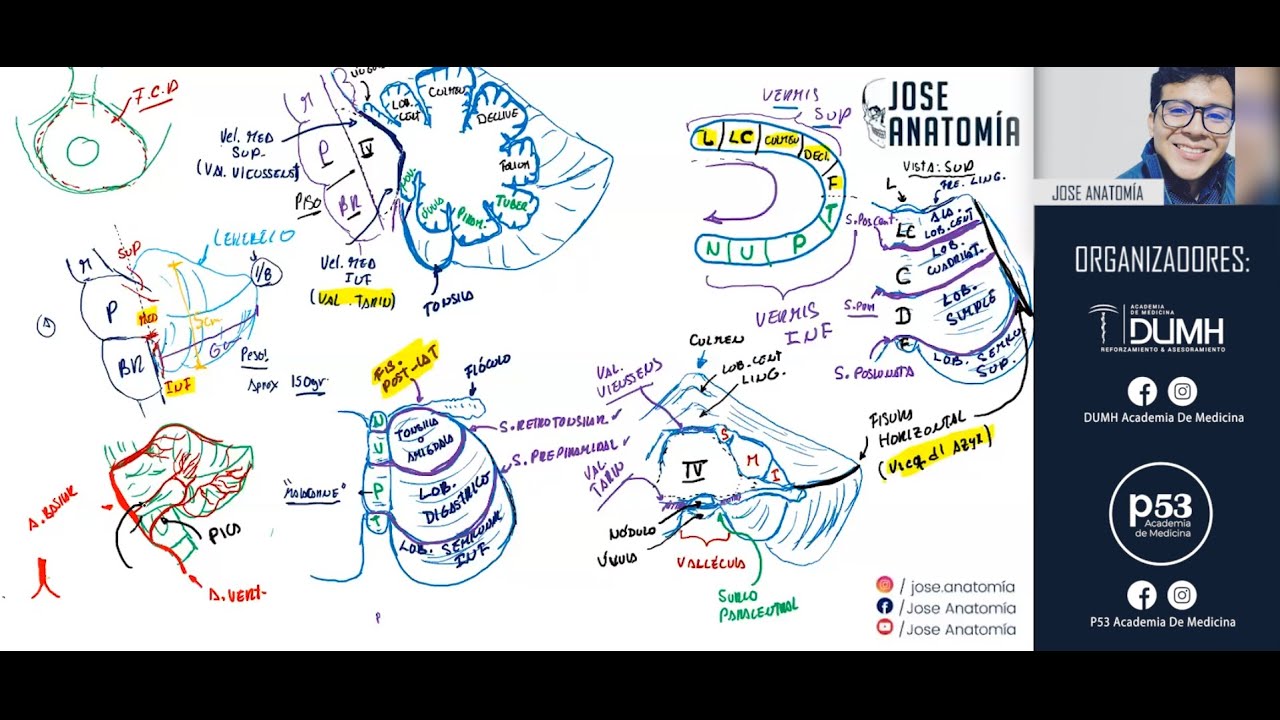 F.C.P
Vel. MED
SUP.
(VAL. VIEUSSENS)
M
P
IV
BR
PISO
LOB.
CENT
CULMEN
DECLIVE
FOLIUM
TUBER
PIRAM.
ÚVULA
NOD.
Vel. MED
INF
(VAL. TARIN)
TONSILA
VERMIS
SUP
L LC CULMEN DECL. F T
N U P
VERMIS
INF
JOSE
ANATOMÍA
VISTA: SUP
L
FRE. LING.
S. POSCENT.
LC
ALA.
LOB. CENT
C
LOB.
CUADRILAT.
D
LOB.
SIMPLE
F
LOB. SEMILU
SUP.
S. POSLUNATA
SUP
CEREBELO
M
P
BR
MED
INF
5cm
6cm
1/8
PESO:
Aprox 150gr.
FIS.
POST-LAT
FLÓCULO
N
U
P
T
TONSILA
O
AMIGDALA
S. RETROTONSILAR ✓
S. PREPIRAMIDAL ✓
LOB.
DIGASTRICO
LOB. SEMILUNAR
INF
CULMEN
LOB. CENT
LING.
VAL.
VIEUSSENS
IV
S
M
I
VAL
TARIN
NÓDULO
ÚVULA
VALLÉCULA
SURCO
PARACENTRAL
FISURA
HORIZONTAL
(Vicq. d'AZYR)
A. BASILAR
PICA
A. VERT.
P
/ jose.anatomía
/Jose Anatomía
/Jose Anatomía
JOSE ANATOMÍA
ORGANIZADORES:
ACADEMIA
DE MEDICINA
DUMH
REFORZAMIENTO & ASESORAMIENTO
DUMH Academia De Medicina
p53
Academia
de Medicina
P53 Academia De Medicina